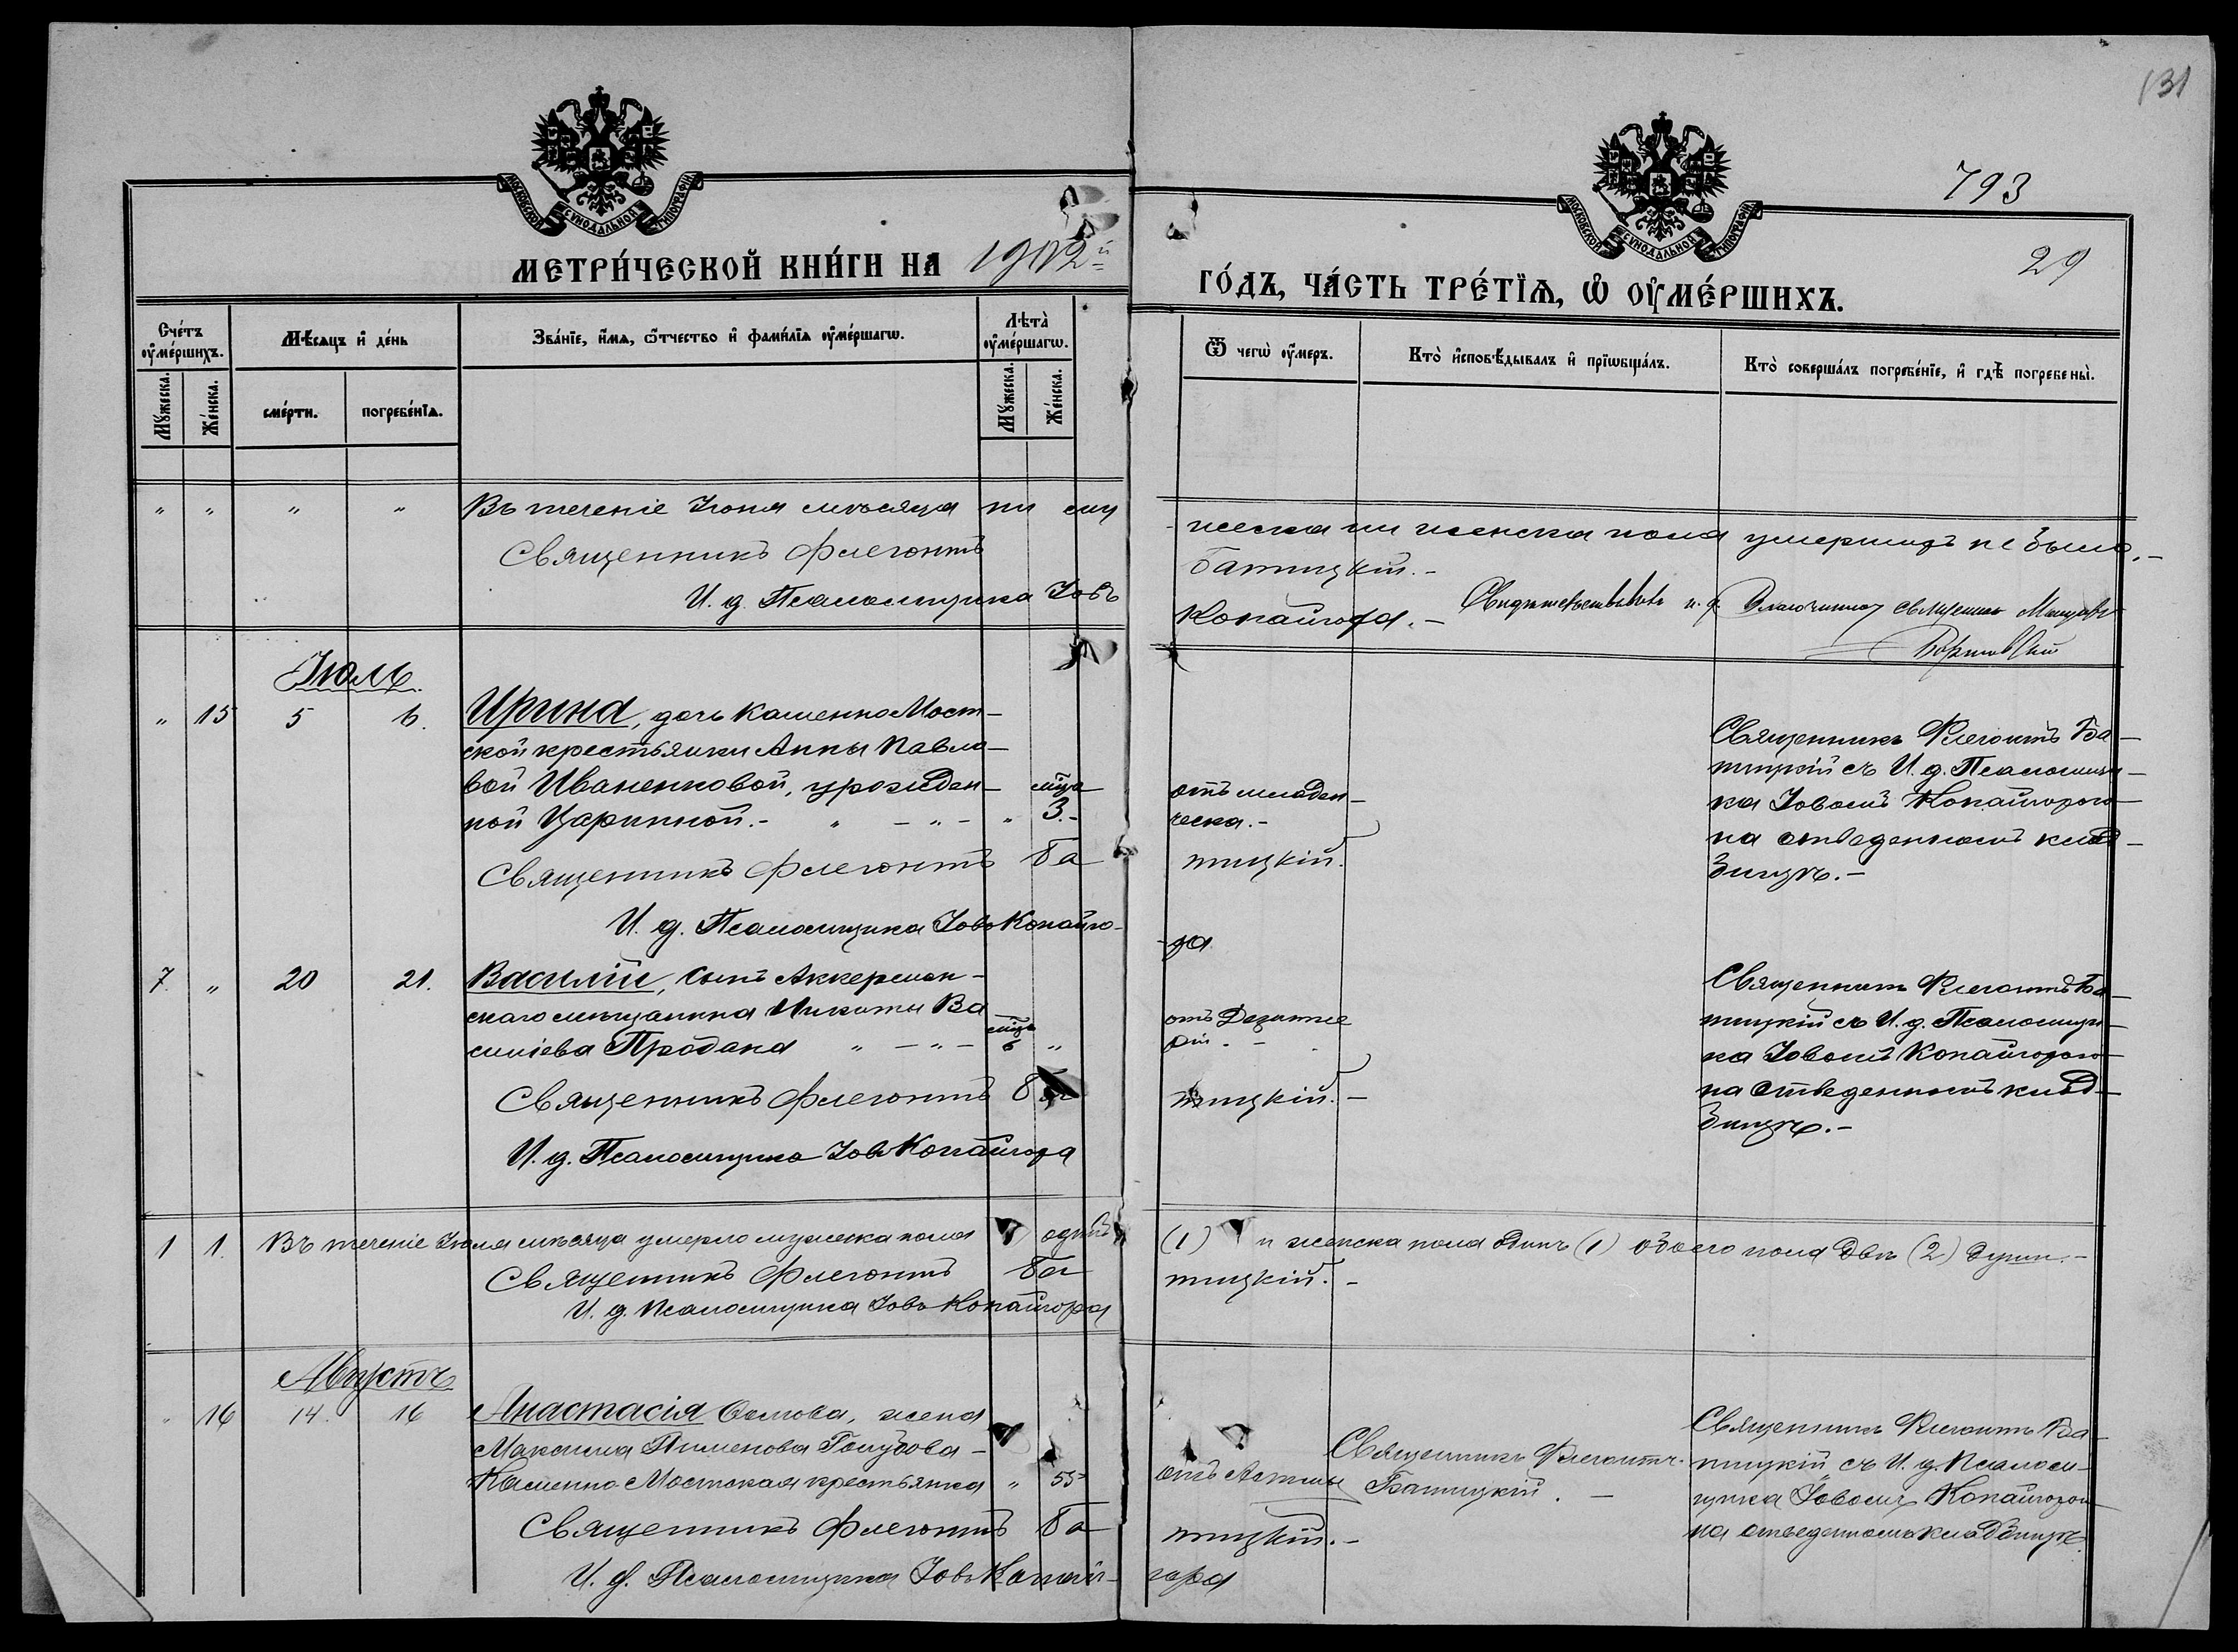 131
793
29
МОСКОВСКОЙ СѴНОДАЛЬНОЙ ТИПОГРАФІИ
МОСКОВСКОЙ СѴНОДАЛЬНОЙ ТИПОГРАФІИ
МЕТРИ́ЧЕСКОЙ КНИ́ГИ НА 1902й
ГО́ДЪ, ЧА́СТЬ ТРЕ́ТІѦ, Ѡ ОУ҆МЕ́РШИХЪ.
Сче́тъ оу҆ме́ршихъ.
Мꙋ́жеска.
Же́нска.
Мѣ́сѧцъ и҆ де́нь
сме́рти.
погребе́нїѧ.
Зва́нїе, и҆́мѧ, ѻ҆́тчество и҆ фами́лїѧ оу҆ме́ршагѡ.
Лѣта̀ оу҆ме́ршагѡ.
Мꙋ́жеска.
Же́нска.
Ѿ чегѡ̀ оу҆́меръ.
Кто̀ и҆сповѣ́дывалъ и҆ прїѡбща́лъ.
Кто̀ соверша́лъ погребе́нїе, и҆ гдѣ̀ погребены̀.
" " " " Въ теченіе Іюня мѣсяца ни му
жеска ни женска пола умершихъ не было.-
Священникъ Флегонтъ
Батицкій.-
И. д. Псаломщика Іовъ
Копайгора.-
Свидѣтельствовалъ и. д. Благочиннаго священникъ
Іюль.
" 15 5 6. Ирина, дочь Каменно Мост-
ской крестьянки Анны Павло-
вой Иваненковой, урожден- мца
ной Цариннoй.- " - " - " 3.-
отъ младен-
ческа.-
Священникъ Флегонтъ Ба-
тицкій съ И. д. Псаломщи-
ка Іовомъ Копайгорою
на отведенномъ клад-
бищѣ.-
Священникъ Флегонтъ Ба
тицкій.
И. д. Псаломщика Іовъ Копайго-
ра
7. " 20 21. Василій, сынъ Аккерман-
скаго мѣщанина Никиты Ва
силіева Продана " - " - мцъ 6 "
отъ Дезинте
ріи. -
Священникъ Флегонтъ Ба-
тицкій съ И. д. Псаломщи-
ка Іовомъ Копайгорою
на отведенномъ клад-
бищѣ.-
Священникъ Флегонтъ Ба
тицкій.-
И. д. Псаломщика Іовъ Копайгора
1 1. Въ теченіе Іюля мѣсяца умерло мужеска пола одинъ
(1) и женска пола одинъ (1) обоего пола двѣ (2) души.-
Священникъ Флегонтъ Ба
тицкій.-
И. д. Псаломщика Іовъ Копайгора
Августъ
" 16 14. 16 Анастасія жена
Максима Пименова Голубова-
Каменно-Мостская крестьянка " 55
отъ Астмы
Священникъ Флегонтъ
Батицкій. -
Священникъ Флегонтъ Ба-
тицкій съ И. д. Псаломщ-
щика Іовомъ Копайгорою
на отведенномъ кладбищѣ.
Священникъ Флегонтъ Ба
тицкій.-
И. д. Псаломщика Іовъ Копай-
гора